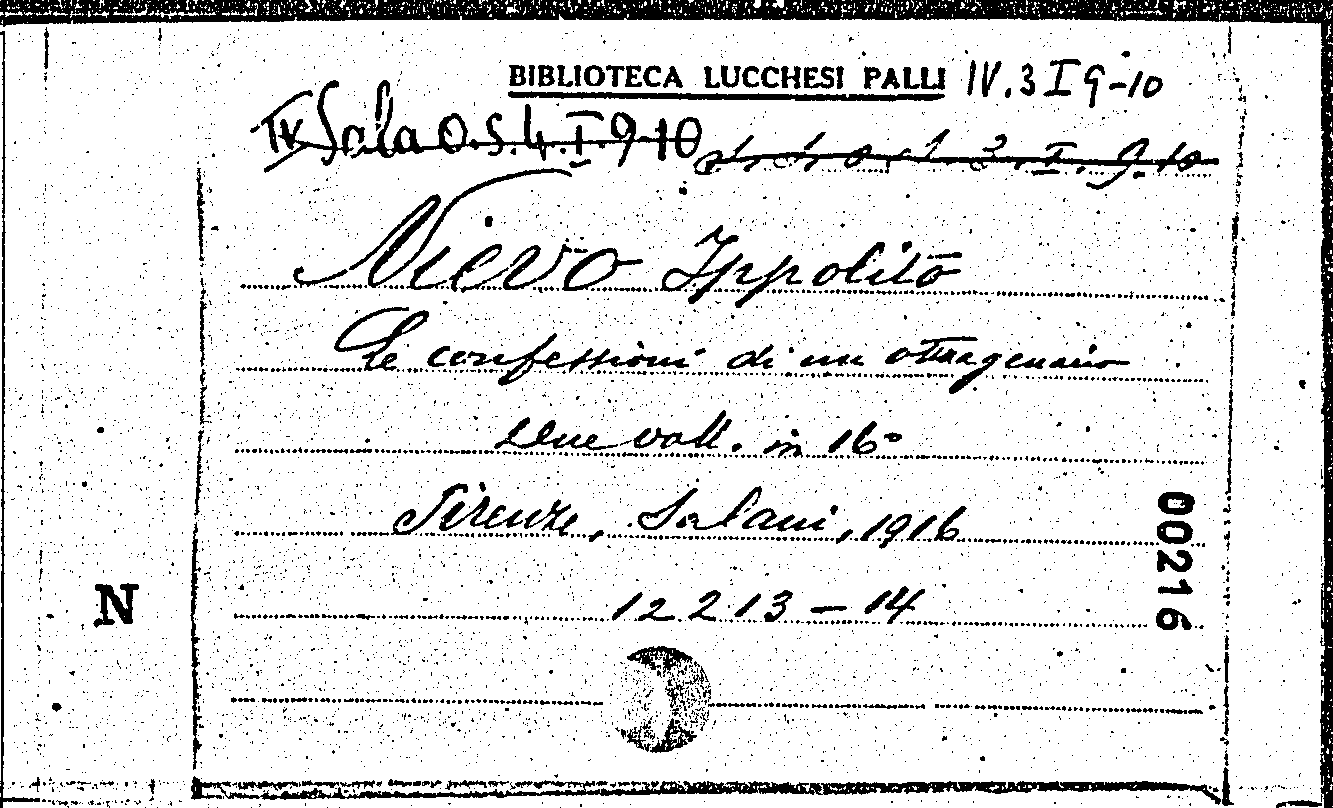 BIBLIOTECA LUCCHESI PALLI IV.3 I 9-10
IV Sala O.S.4.I.9-10
Nievo Ippolito
Le confessioni di un ottuagenario
Due voll. in 16°
Firenze, Salani, 1916
12213-14
N
00216